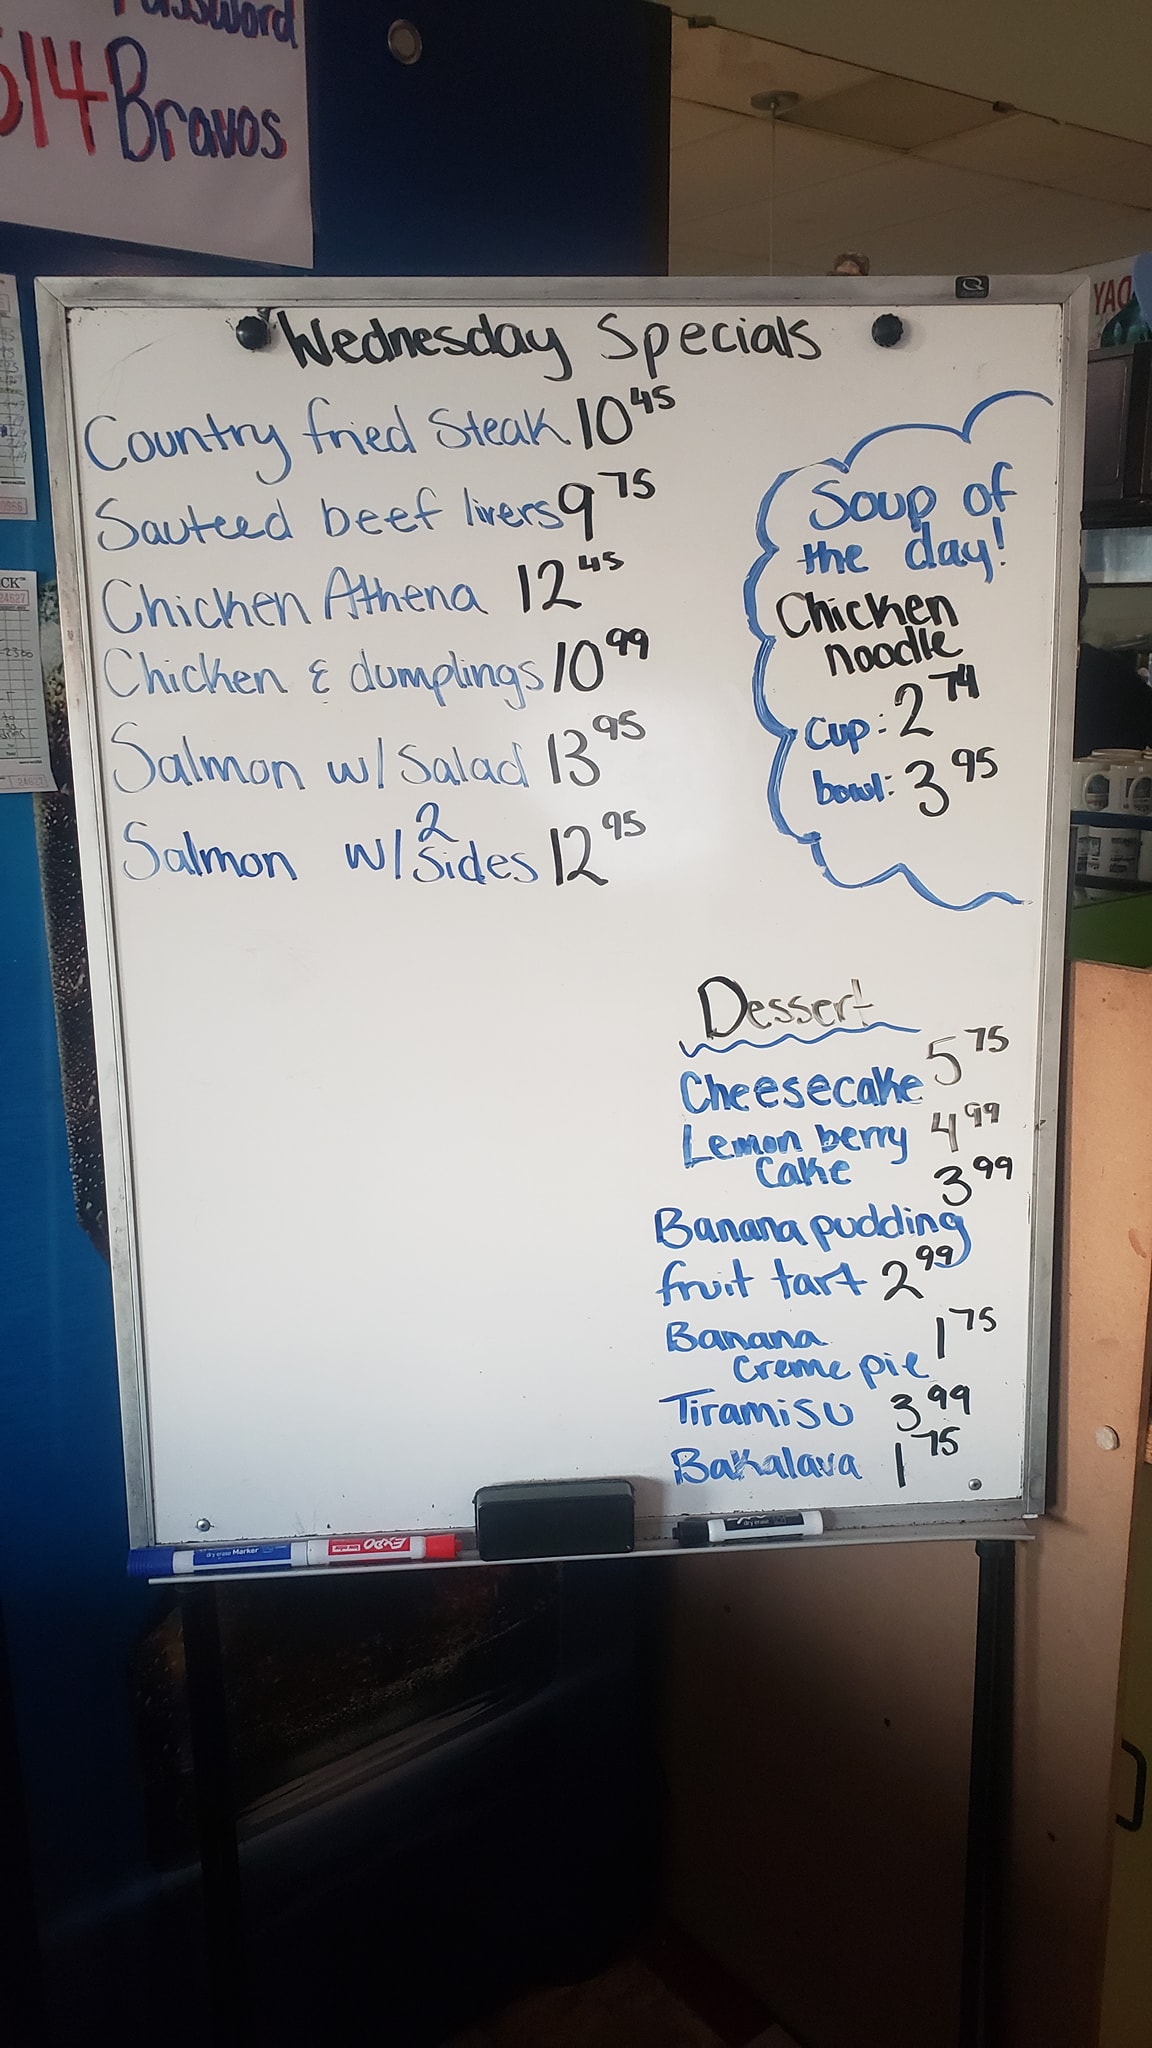 Password
514Bravos
Wednesday Specials
Country fried Steak 10 45
Sauteed beef livers 9 75
Chicken Athena 12 45
Chicken & dumplings 10 99
Salmon w/ Salad 13 95
Salmon w/ 2 Sides 12 95
Soup of
the day!
Chicken
noodle
Cup: 2 74
bowl: 3 95
Dessert
Cheesecake 5 75
Lemon berry 4 99
Cake
3 99
Banana pudding
fruit tart 2 99
Banana 1 75
Creme pie
Tiramisu 3 99
Bakalava 1 75
dry erase Marker
EXPO
dry erase
24627
24627